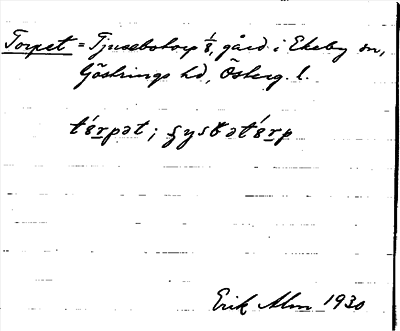 Torpet = Tjusebotorp 1/8, gård i Ekeby sn,
Göstrings hd, Österg. l.
térpət;
Erik Alm 1930